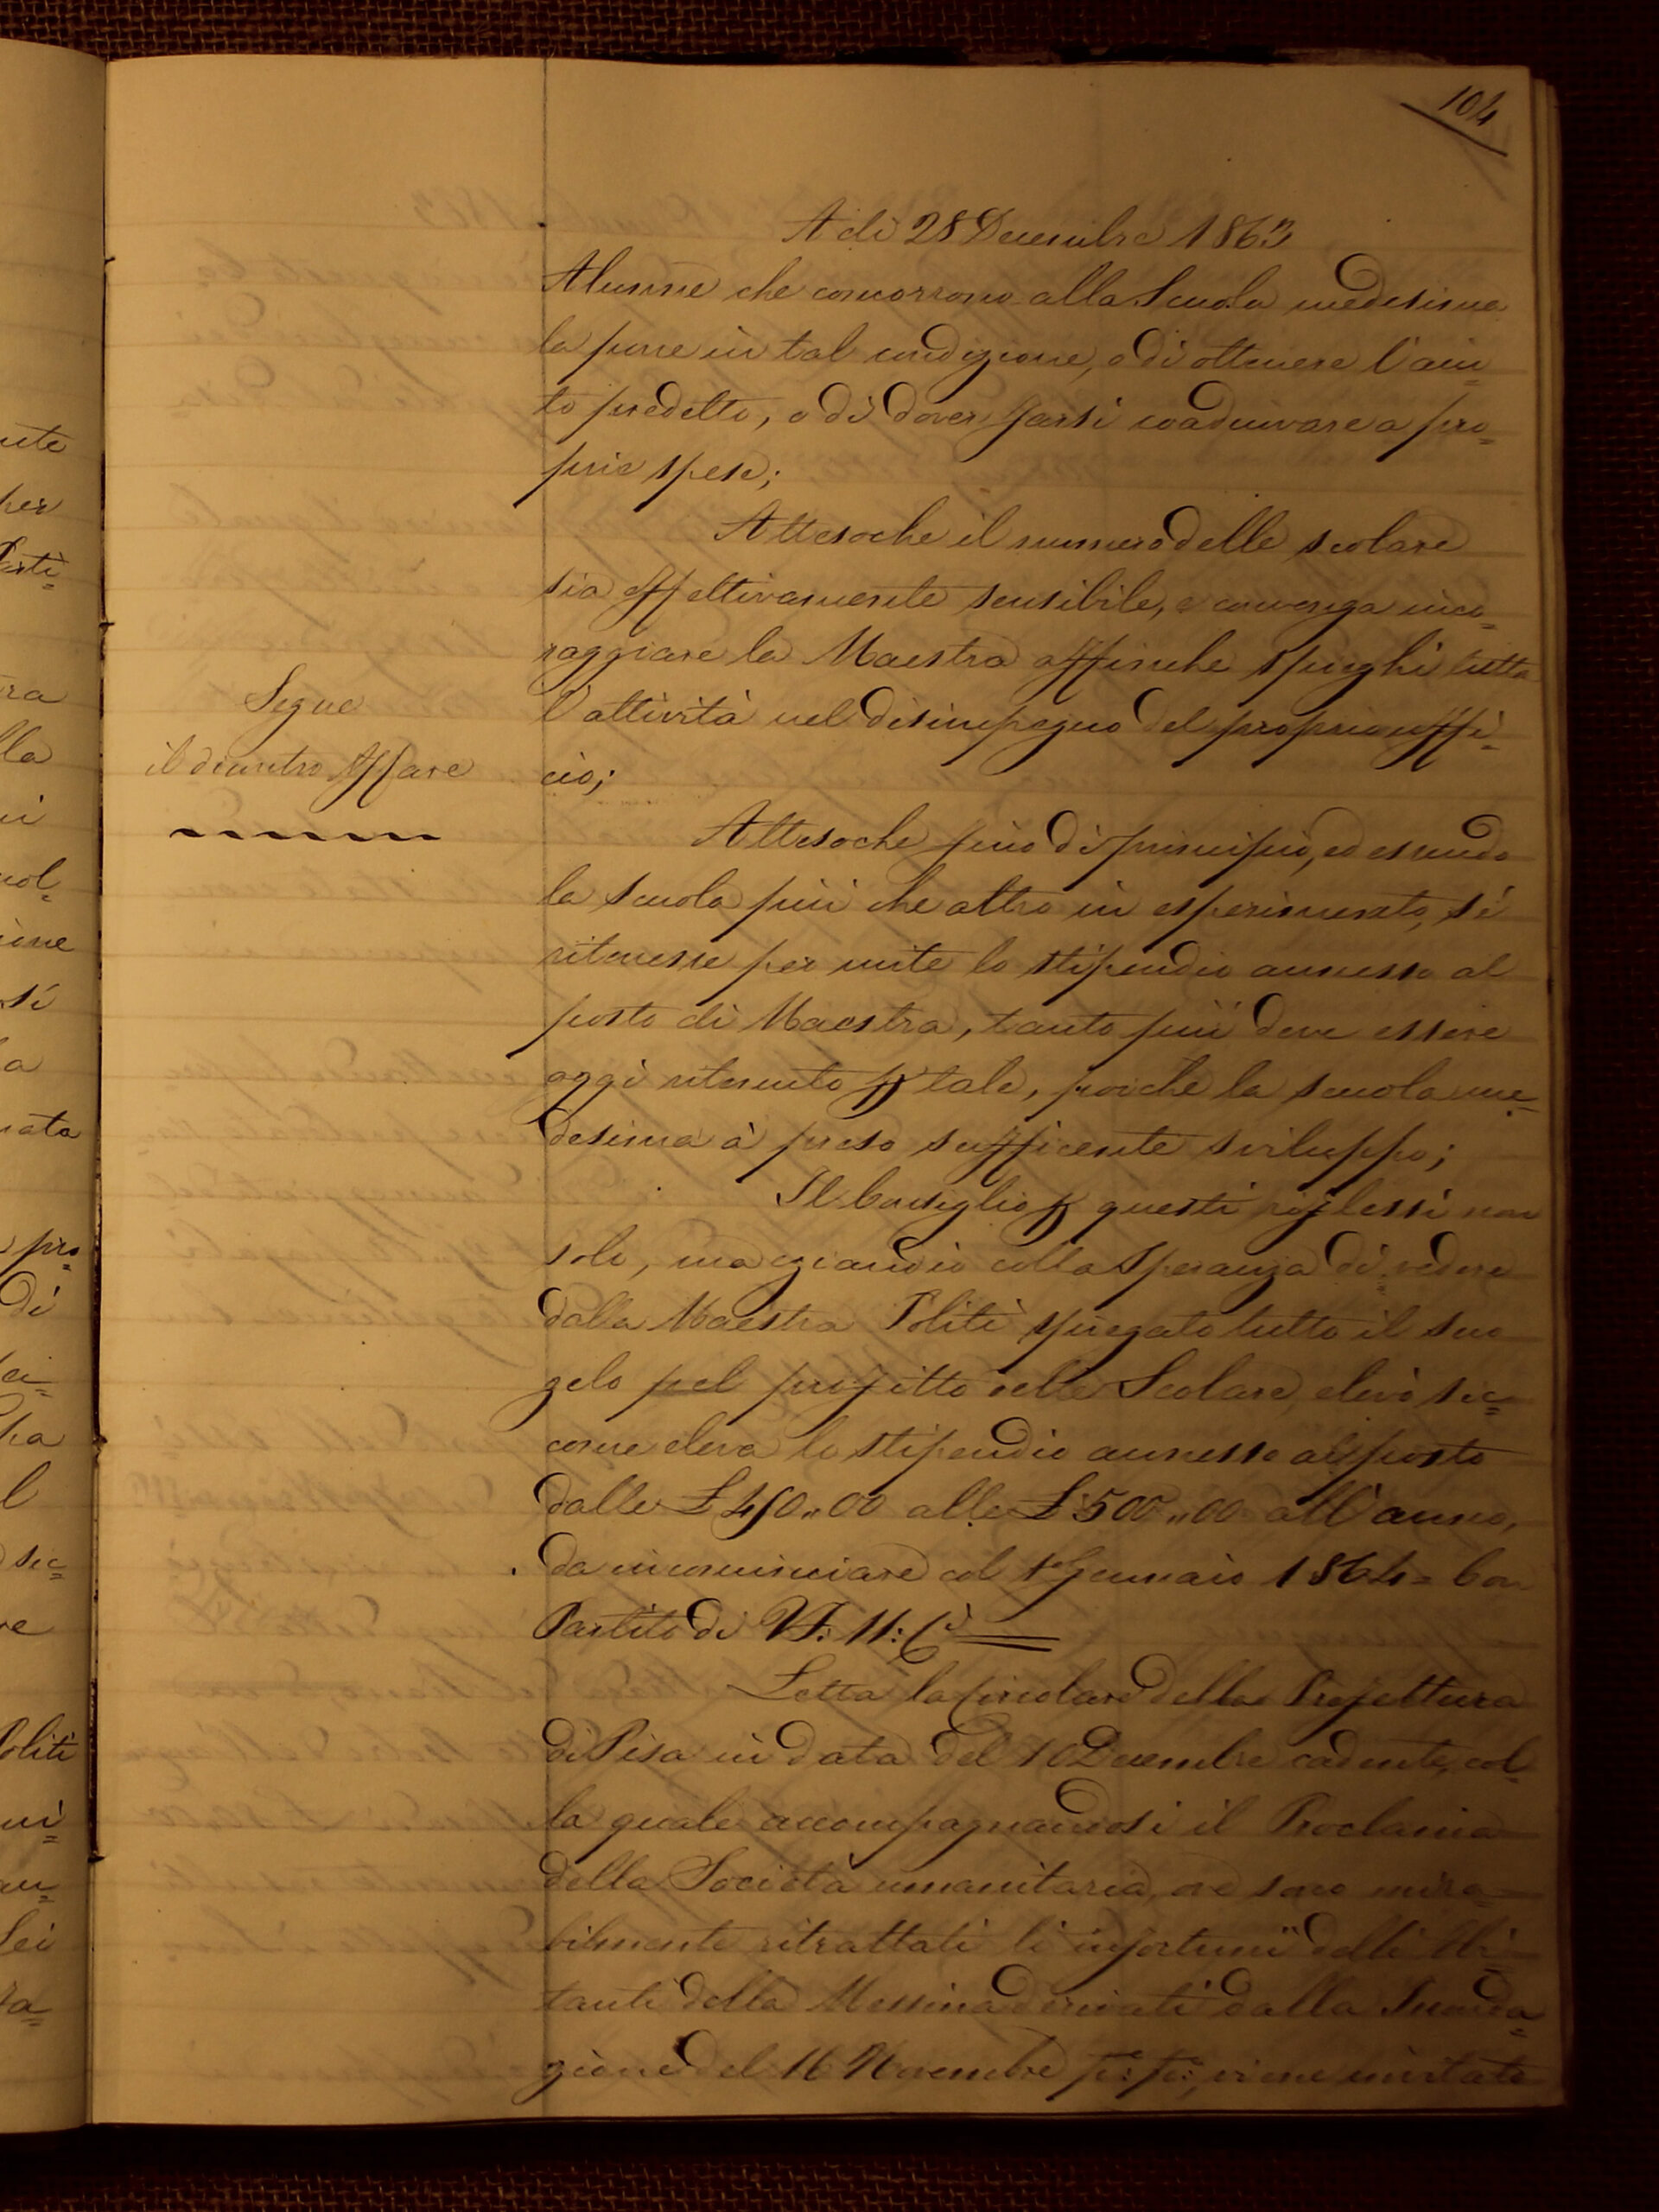 104
A dì 28 Decembre 1863
Alunne che concorrono alla Scuola medesima
la pone in tal condizione, o di ottenere l'aiu=
to predetto, o di dover farsi coadiuvare a pro=
prie spese;
Attesoche il numero delle scolare
sia effettivamente sensibile, e convenga inco=
raggiare la Maestra affinche spieghi tutta
l'attività nel disimpegno del proprio uffi=
cio;
Segue
il dicontro Affare
Attesoche fino di principio, ed essendo
la scuola più che altro in esperimento, si
ritenesse per mite lo stipendio annesso al
posto di Maestra, tanto più deve essere
oggi ritenuto p tale, poiche la scuola me=
desima à preso sufficente sviluppo;
Il Consiglio p questi riflessi non
solo, ma eziandio colla speranza di vedere
dalla Maestra Politi spiegato tutto il suo
zelo pel profitto delle Scolare, elevò sic=
come eleva lo stipendio annesso al posto
dalle £ 450,,00 alle £ 500,,00 all'anno,
da incominciare col 1° Gennaio 1864= Con
Partito di Vf: 11: Ci
Letta la Circolare della Prefettura
di Pisa in data del 10 Decembre cadente, col=
la quale accompagnandosi il Proclama
della Società umanitaria, ove sono mira=
bilmente ritrattati li infortunii delli Abi=
tanti della Messina derivati dalla Inonda=
zione del 16 Novembre p: p:, viene invitato
ute
per
Parti=
ra
lla
ui
uol=
ione
si
a
rata
pro=
di
ei=
ha
l
sic=
re
Politi
ui=
au=
Lei
ra=